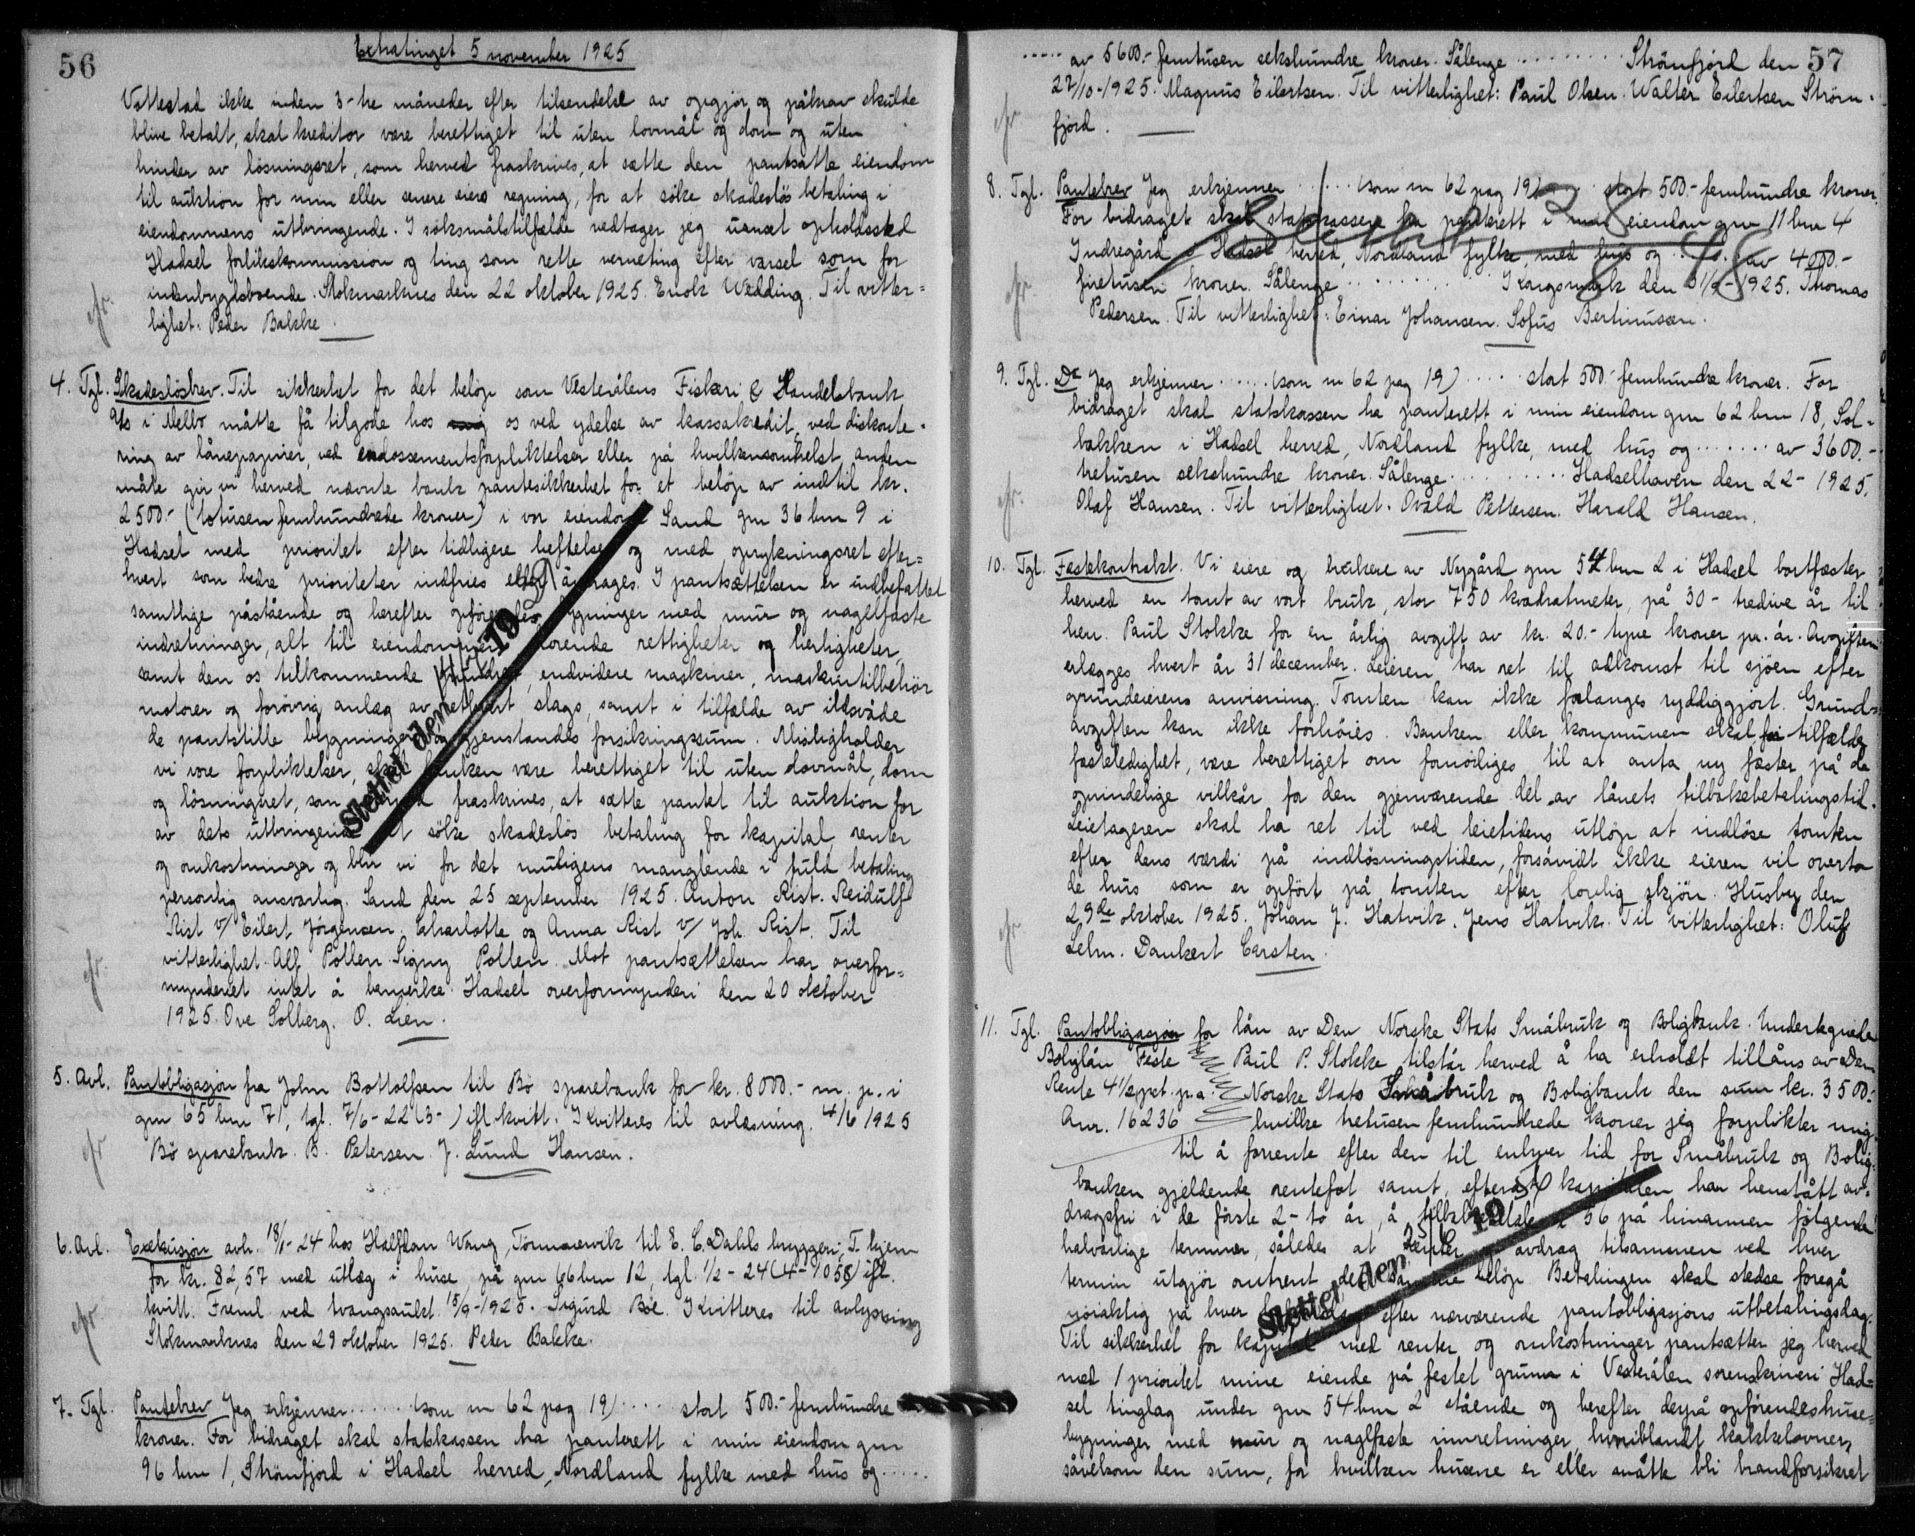 56
Extratinget 5 november 1925
Vottestad ikke inden 3-tre måneder efter tilsendelse av opgjør og påkrav skulde
blive betalt, skal kreditor være berettiget til uten lovmål og dom og uten
hinder av lösningsret, som herved fraskrives, at sætte den pantsatte eiendom
til auktion for min eller senere eiers regning, for at söke skadeslös betaling i
eiendommens utbringende. I söksmålstilfælde vedtager jeg uanset opholdssted
Hadsel forlikskommission og ting som rette verneting efter varsel som for
indenbygdsboende. Stokmarknes den 22 oktober 1925. Enok Wedding. Til vitter=
lighet: Peder Bakke.
4. Tgl. Skadeslösbrev. Til sikkerhet for det belöp som Vesterålens Fiskeri & Handelsbank
A/s i Melbo måtte få tilgode hos os ved ydelse av kassakredit, ved diskonte-
ring av lånepapirer, ved endossementsforpliktelser eller på hvilkensomhelst anden
måte gir vi herved nævnte bank pantesikkerhet for et belöp av indtil kr.
2500.- (totusen femhundrede kroner) i vor eiendom Sand gnr 36 bnr 9 i
Hadsel med prioritet efter tidligere heftelser og med oprykningsret efter=
hvert som bedre prioriteter indfries eller avdrages. I pantsættelsen er indbefattet
samtlige påstående og herefter opförendes bygninger med mur og nagelfaste
indretninger, alt til eiendommen hörende rettigheter og herligheter,
samt den os tilkommende endvidere maskiner, maskintilbehör
motorer og forövrig anlæg av ethvert slags, samt i tilfælde av ildsvåde
de pantstillte bygningers og gjenstandes forsikringssum. Misligholder
vi vore forpliktelser, skal banken være berettiget til uten lovmål, dom
og lösningsret, som herved fraskrives, at sætte pantet til auktion for
av dets utbringende at söke skadeslös betaling for kapital, renter
og omkostninger og blir vi for det muligens manglende i fuld betaling
personlig ansvarlig. Sand den 25 september 1925. Anton Rist. Reidulf
Rist v/ Eilert Jörgensen. Charlotte og Anna Rist v/ Joh. Rist. Til
vitterlighet. Alf Pollen. Signy Pollen. Mot pantsættelsen har overfor=
mynderiet intet å bemerke. Hadsel overformynderi den 20 oktober
1925. Ove Solberg. O. Lien.
Slettet den 19
5. Avl. Pantobligasjon fra John Bottolfsen til Bö sparebank for kr. 8000.- m. p. i
gnr 65 bnr 71, tgl. 7/6-22 (3-) ifl. kvitt. Kvitteres til avlæsning. 4/6 1925
Bö sparebank. B. Petersen. J. Lund Hansen.
6. Avl. Exekusjon avh. 18/1-24 hos Halfdan Wang, til E. C. Dahls bryggeri, T. hjem
for kr. 82,57 med utlæg i huse på gnr 66 bnr 12, tgl. 1/2-24 (4-1058) ifl.
kvitt. Freml. ved tvangsaukt. 15/9-1925. Sigurd Böe. Kvitteres til avlysning
Stokmarknes den 29 oktober 1925. Peder Bakke.
7. Tgl. Pantebrev Jeg erkjenner ..... (som nr 62 pag 19) ..... stort 500.- femhundre
kroner. For bidraget skal statskassen ha panterett i min eiendom gnr
96 bnr 1, Strömfjord i Hadsel herred, Nordland fylke med hus og ......
57
..... av 5600.- femtusen sekshundre kroner. Sålenge .......... Strömfjord den
27/10-1925. Magnus Eilertsen. Til vitterlighet: Paul Olsen. Walter Eilertsen Ström-
fjord.
8. Tgl. Pantebrev Jeg erkjenner ..... (som nr 62 pag 19) ..... stort 500.- femhundre kroner.
For bidraget skal statskassen ha panterett i min eiendom gnr 11 bnr 4
Indregård i Hadsel herred, Nordland fylke, med hus og ... av 4000.-
firetusen kroner. Sålenge .......... den 1/9-1925. Thomas
Pedersen. Til vitterlighet: Einar Johansen. Sofus Bertinussen.
9. Tgl. Do Jeg erkjenner ...... (som nr 62 pag 19) ..... stort 500.- femhundre kroner. For
bidraget skal statskassen ha panterett i min eiendom gnr 62 bnr 18, Sol-
bakken i Hadsel herred, Nordland fylke, med hus og ....... av 3600.-
tretusen sekshundre kroner. Sålenge .......... Hadselhavn den 22- 1925.
Olaf Hansen. Til vitterlighet. Ovald Pettersen. Harald Hansen.
10. Tgl. Festekontrakt. Vi eiere og brukere av Nygård gnr 54 bnr 2 i Hadsel bortfæster
herved en tomt av vort bruk, stor 750 kvadratmeter, på 30- tredive år til
herr. Paul Stokke for en årlig avgift av kr. 20.- tyve kroner pr. år. Avgiften
erlægges hvert år 31 december. Leieren har ret til adkomst til sjöen efter
grundeierens anvisning. Tomten kan ikke forlanges ryddiggjort. Grund=
avgiften kan ikke forhöies. Banken eller kommunen skal i tilfælde
festeledighet, være berettiget om fornöiliges til at anta ny fæster på de
oprindelige villkår for den gjenværende del av lånets tilbakebetalingstid.
Leietageren skal ha ret til ved leietidens utlöp at indlöse tomten
efter dens værdi på indlösningstiden, forsåvidt ikke eieren vil overta
de hus som er opfört på tomten efter lovlig skjön. Husby den
29de oktober 1925. Johan J. Hatvik. Jens Hatvik. Til vitterlighet: Oluf
Selm. Dankert Carsten.
11. Tgl. Pantobligasjon for lån av Den Norske Stats Småbruk og Boligbank. Undertegnede
Boliglån Feste Paul P. Stokke tilstår herved å ha erholdt tillåns av Den
Rente 4 1/2 pct. p. a. Norske Stats Småbruk og Boligbank den sum kr. 3500.-
Anr. 16236 hvilke tretusen femhundrede kroner jeg forplikter mig
til å forrente efter den til enhver tid for Småbruk og Bolig-
banken gjeldende rentefot samt, efterat kapitalen har henstått av-
dragsfri i de förste 2- to år, å tilbakebetale i 56 på hinannen fölgende
halvårlige terminer, således at renter og avdrag tilsammen ved hver
termin utgjör omtrent det samme belöp. Betalingen skal stedse foregå
nöiaktig på hver efter nærværende pantobligasjons utbetalingsdag.
Til sikkerhet for kapital med renter og omkostninger pantsætter jeg herved
med 1 prioritet mine eiende på festet grunn i Vesterålen sorenskriveri Had-
sel tinglag under gnr 54 bnr 2 stående og herefter derpå opförendes huse-
bygninger med mur og naglfaste innretninger, hvoriblandt kakkelovner,
såvelsom den sum, for hvilken husene er eller måtte bli brandforsikret
Slettet den 19